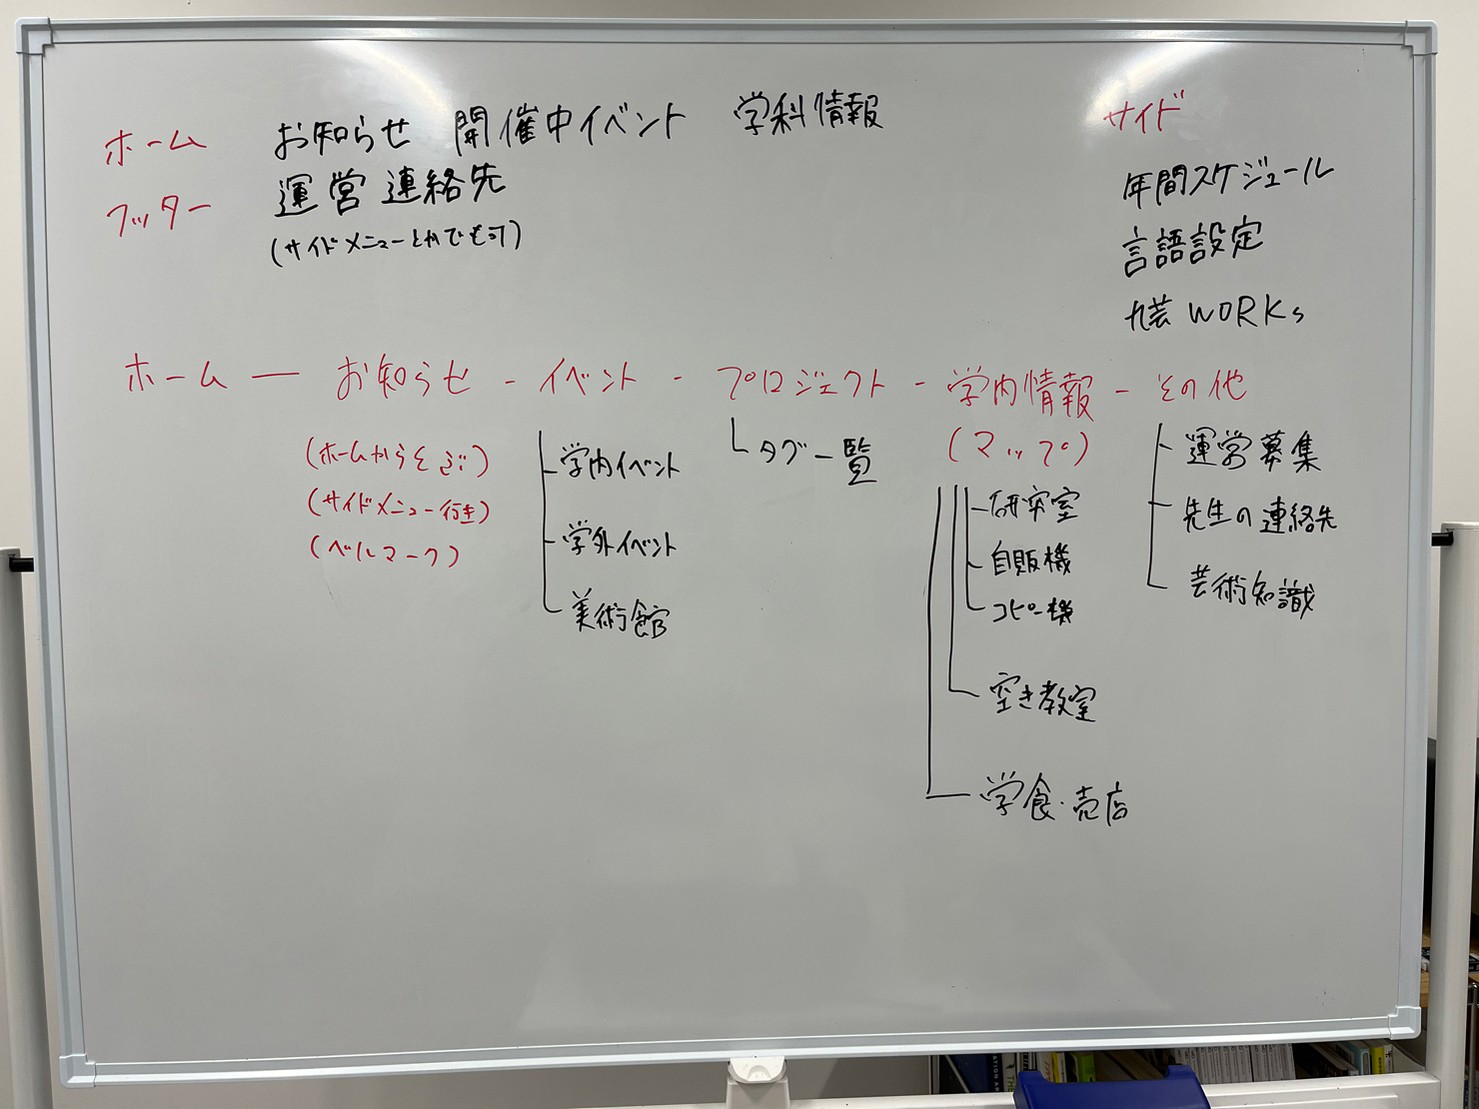 ホーム お知らせ 開催中イベント 学科情報
フッター 運営連絡先
(サイドメニューとかでも可)
サイド
年間スケジュール
言語設定
九芸 WORKs
ホーム — お知らせ - イベント - プロジェクト - 学内情報 - その他
(ホームからとぶ)
(サイドメニュー行き)
(ベルマーク)
学内イベント
学外イベント
美術館
タグ一覧
(マップ)
研究室
自販機
コピー機
空き教室
学食・売店
運営募集
先生の連絡先
芸術知識